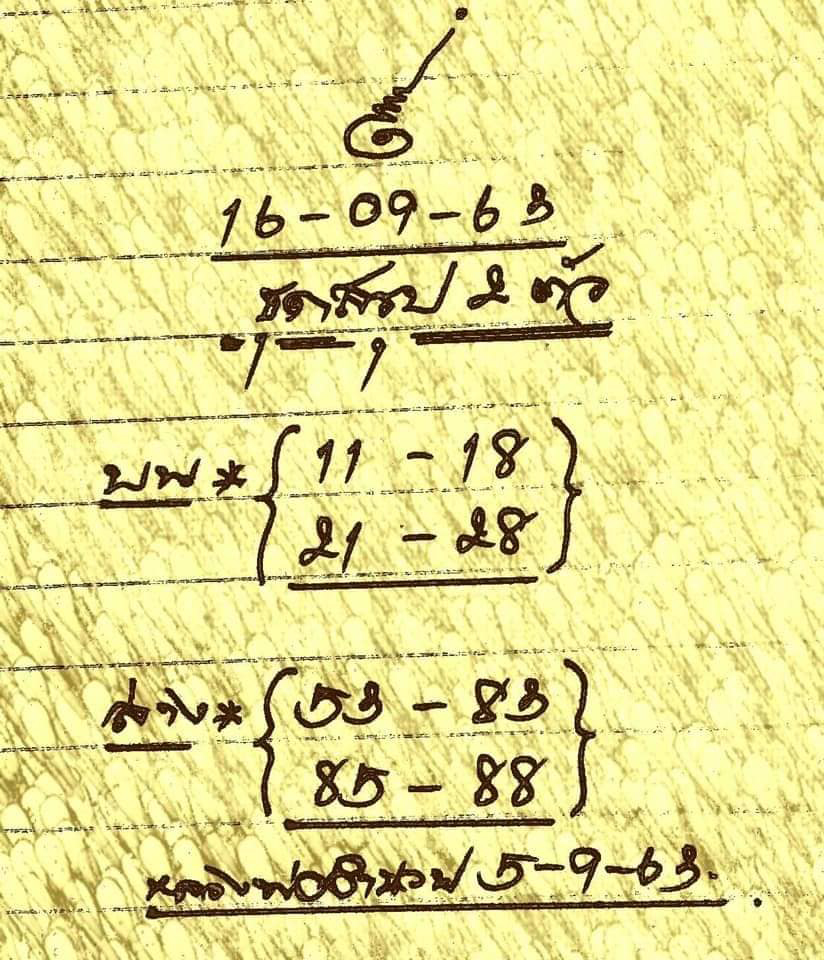 16-09-63
สรุป 2 ตัว
บน * { 11 - 18
21 - 28 }
ล่าง * { 53 - 83
85 - 88 }
หลวงพ่ออำนวย 5-9-63.